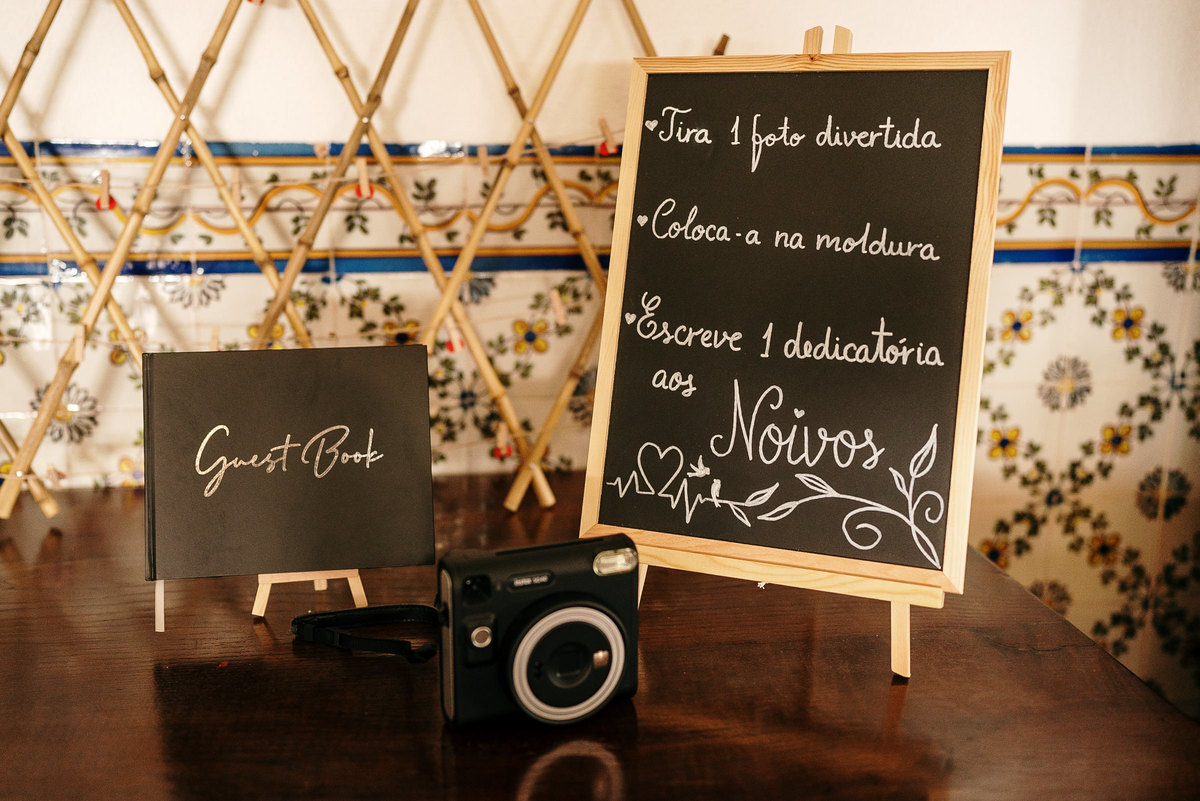 Tira 1 foto divertida
Coloca-a na moldura
Escreve 1 dedicatória
aos
Noivos
Guest Book